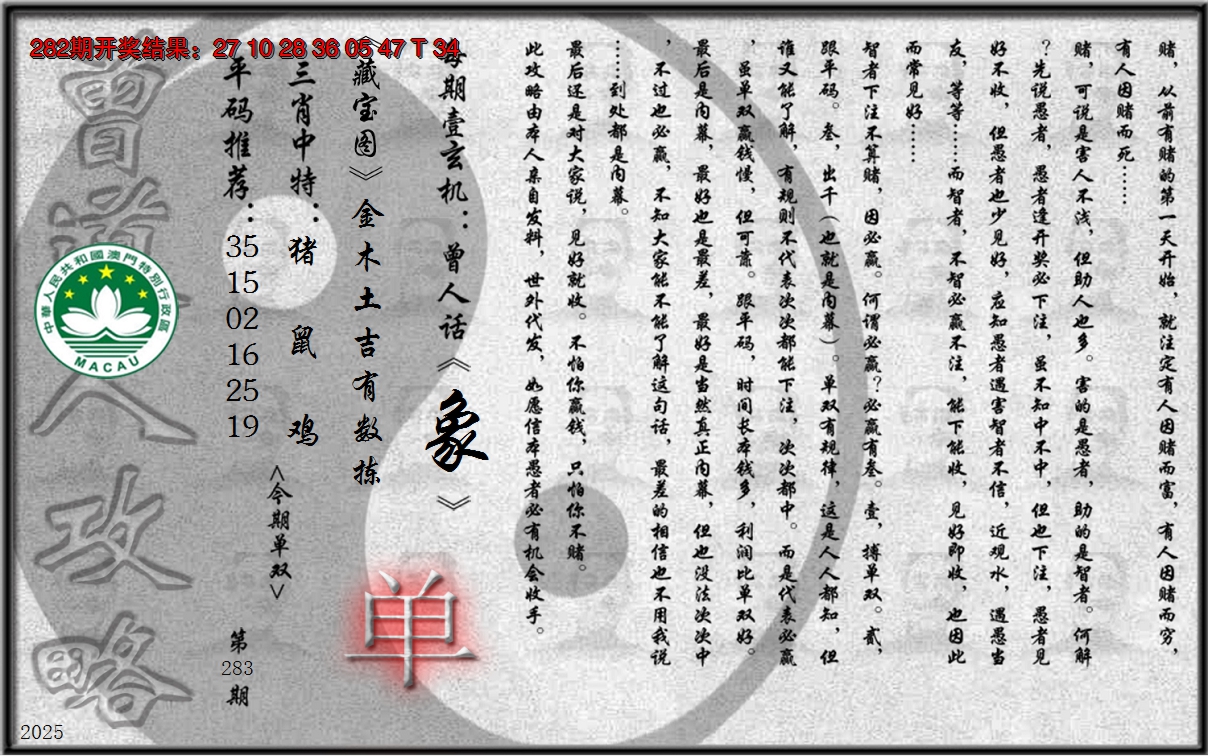 282期开奖结果：27 10 28 36 05 47 T 34
赌，从前有赌的第一天开始，就注定有人因赌而富，有人因赌而穷，
有人因赌而死……
赌，可说是害人不浅，但助人也多。害的是愚者，助的是智者。何解
？先说愚者，愚者逢开奖必下注，虽不知中不中，但也下注，愚者见
好不收，但愚者也少见好，应知愚者遇害智者不信，近观水，遇愚当
友，等等……而智者，不智必赢不注，能下能收，见好即收，也因此
而常见好……
智者下注不算赌，因必赢。何谓必赢？必赢有叁。壹，搏单双。贰，
跟平码。叁，出千（也就是内幕）。单双有规律，这是人人都知，但
谁又能了解，有规则不代表次次都能下注，次次都中。而是代表必赢
，虽单双赢钱慢，但可靠。跟平码，时间长本钱多，利润比单双好。
最后是内幕，最好也是最差，最好是当然真正内幕，但也没法次次中
，不过也必赢，不知大家能不能了解这句话，最差的相信也不用我说
……到处都是内幕。
最后还是对大家说，见好就收。不怕你赢钱，只怕你不赌。
此攻略由本人亲自发料，世外代发，如愿信本愚者必有机会收手。
每期壹玄机：曾人话《象》
《藏宝图》金木土吉有数拣
三肖中特：猪 鼠 鸡
<今期单双>
单
平码推荐：35 15 02 16 25 19
第283期
曾道人攻略
中華人民共和國澳門特別行政區
MACAU
2025